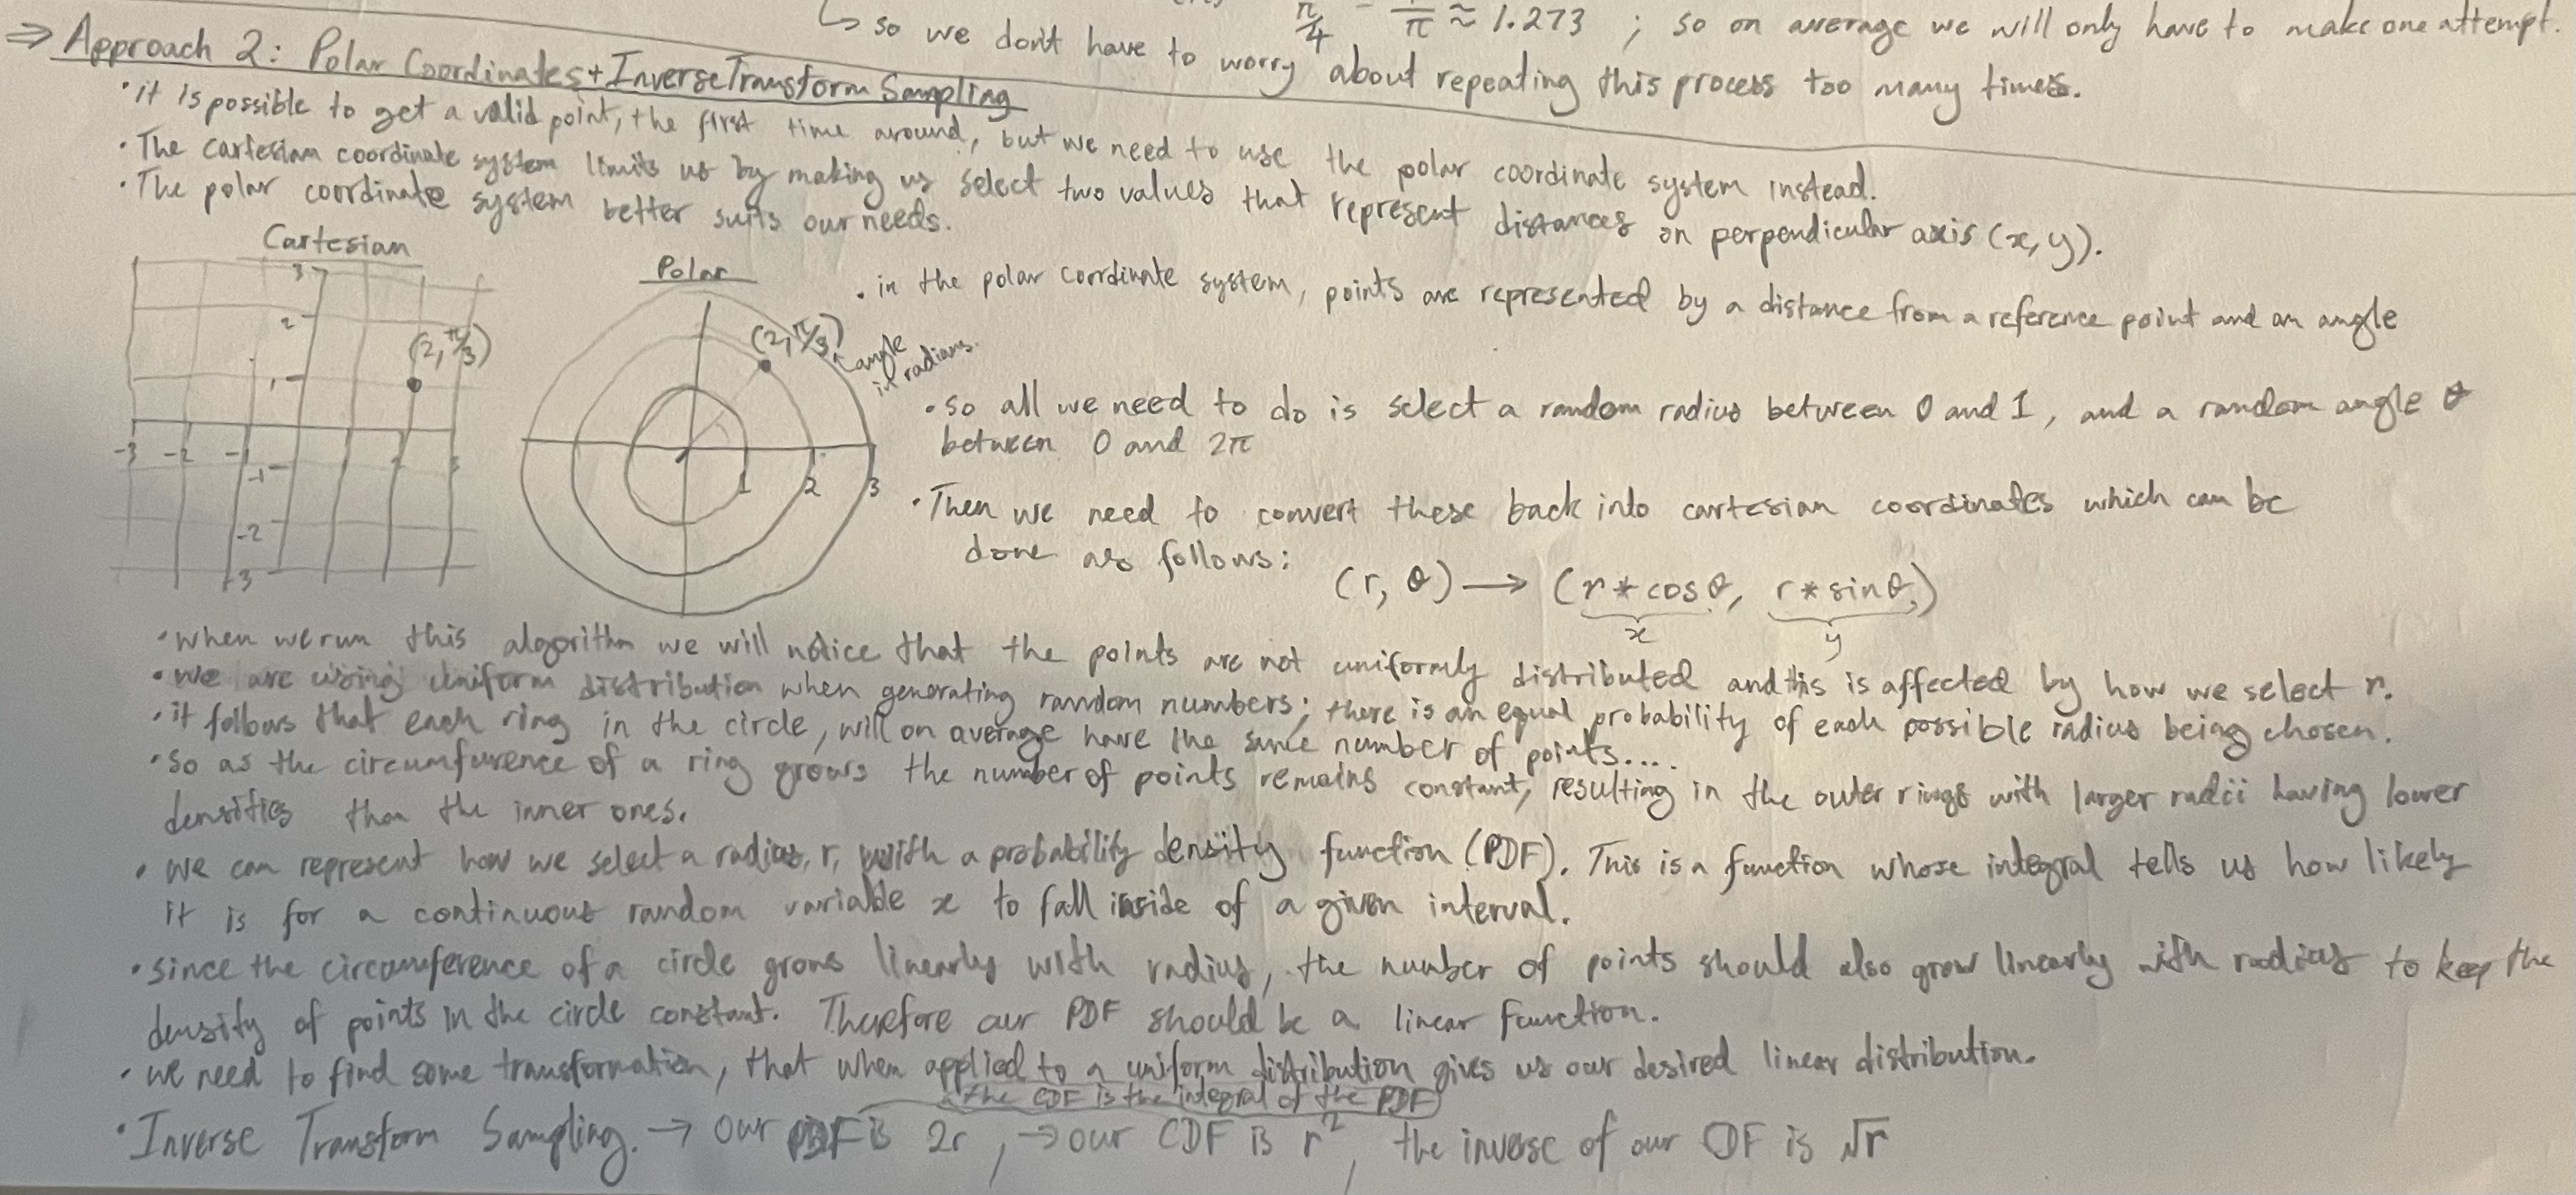 ↳ so we don't have to worry about repeating this process too many times.
π/4 π ≈ 1.273 ; so on average we will only have to make one attempt.
⇒ Approach 2: Polar Coordinates + Inverse Transform Sampling
• it is possible to get a valid point, the first time around, but we need to use the polar coordinate system instead.
• The cartesian coordinate system limits us by making us select two values that represent distances on perpendicular axis (x, y).
• The polar coordinate system better suits our needs.
Cartesian
3
2
1
(2, π/3)
-3 -2 -1
-1
-2
-3
Polar
(2, π/3)
angle
in radians.
1 2 3
• in the polar coordinate system, points are represented by a distance from a reference point and an angle
• so all we need to do is select a random radius between 0 and 1, and a random angle θ
between 0 and 2π
• Then we need to convert these back into cartesian coordinates which can be
done as follows:
(r, θ) → (r * cosθ, r * sinθ)
x y
• when we run this algorithm we will notice that the points are not uniformly distributed and this is affected by how we select r.
• we are using uniform distribution when generating random numbers; there is an equal probability of each possible radius being chosen.
• it follows that each ring in the circle, will on average have the same number of points....
• so as the circumfurence of a ring grows the number of points remains constant, resulting in the outer rings with larger radii having lower
densities than the inner ones.
• we can represent how we select a radius, r, with a probability density function (PDF). This is a function whose integral tells us how likely
it is for a continuous random variable x to fall inside of a given interval.
• since the circumference of a circle grows linearly with radius, the number of points should also grow linearly with radius to keep the
density of points in the circle constant. Therefore our PDF should be a linear function.
• we need to find some transformation, that when applied to a uniform distribution gives us our desired linear distribution.
the CDF is the integral of the PDF
• Inverse Transform Sampling. → our PDF is 2r, → our CDF is r², the inverse of our CDF is √r